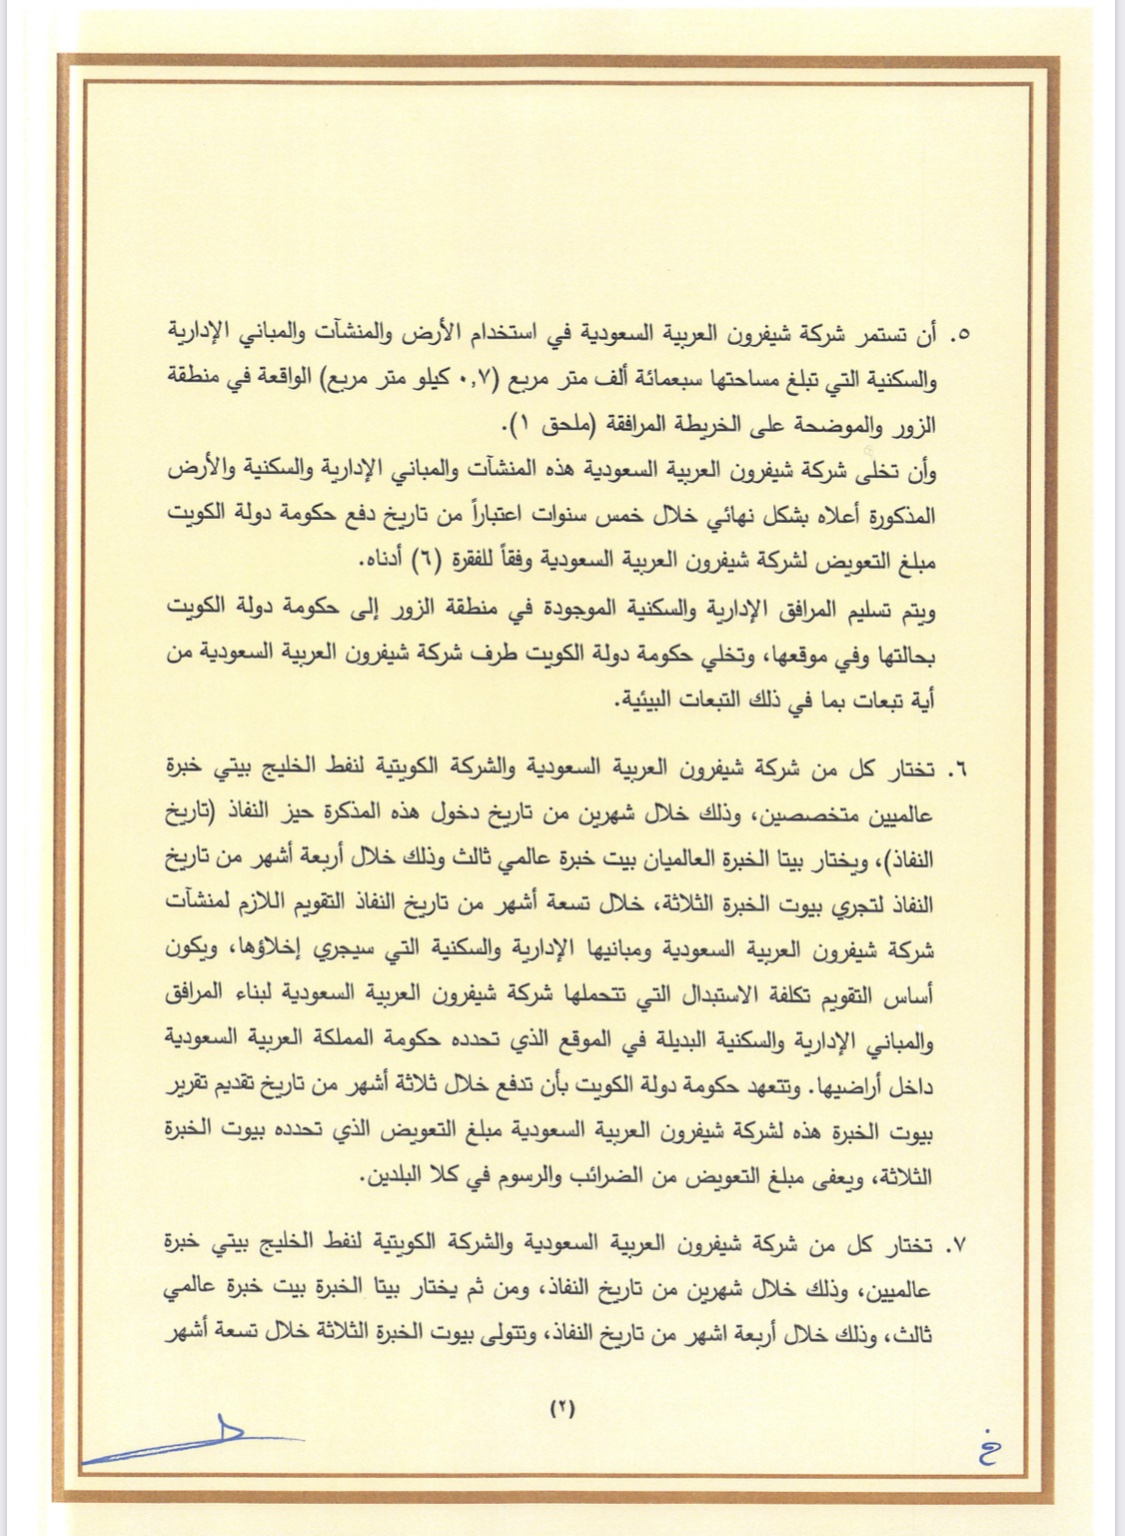 ٥. أن تستمر شركة شيفرون العربية السعودية في استخدام الأرض والمنشآت والمباني الإدارية
والسكنية التي تبلغ مساحتها سبعمائة ألف متر مربع (٠,٧ كيلو متر مربع) الواقعة في منطقة
الزور والموضحة على الخريطة المرافقة (ملحق ١).
وأن تخلى شركة شيفرون العربية السعودية هذه المنشآت والمباني الإدارية والسكنية والأرض
المذكورة أعلاه بشكل نهائي خلال خمس سنوات اعتباراً من تاريخ دفع حكومة دولة الكويت
مبلغ التعويض لشركة شيفرون العربية السعودية وفقاً للفقرة (٦) أدناه.
ويتم تسليم المرافق الإدارية والسكنية الموجودة في منطقة الزور إلى حكومة دولة الكويت
بحالتها وفي موقعها، وتخلي حكومة دولة الكويت طرف شركة شيفرون العربية السعودية من
أية تبعات بما في ذلك التبعات البيئية.
٦. تختار كل من شركة شيفرون العربية السعودية والشركة الكويتية لنفط الخليج بيتي خبرة
عالميين متخصصين، وذلك خلال شهرين من تاريخ دخول هذه المذكرة حيز النفاذ (تاريخ
النفاذ)، ويختار بيتا الخبرة العالميان بيت خبرة عالمي ثالث وذلك خلال أربعة أشهر من تاريخ
النفاذ لتجري بيوت الخبرة الثلاثة، خلال تسعة أشهر من تاريخ النفاذ التقويم اللازم لمنشآت
شركة شيفرون العربية السعودية ومبانيها الإدارية والسكنية التي سيجري إخلاؤها، ويكون
أساس التقويم تكلفة الاستبدال التي تتحملها شركة شيفرون العربية السعودية لبناء المرافق
والمباني الإدارية والسكنية البديلة في الموقع الذي تحدده حكومة المملكة العربية السعودية
داخل أراضيها. وتتعهد حكومة دولة الكويت بأن تدفع خلال ثلاثة أشهر من تاريخ تقديم تقرير
بيوت الخبرة هذه لشركة شيفرون العربية السعودية مبلغ التعويض الذي تحدده بيوت الخبرة
الثلاثة، ويعفى مبلغ التعويض من الضرائب والرسوم في كلا البلدين.
٧. تختار كل من شركة شيفرون العربية السعودية والشركة الكويتية لنفط الخليج بيتي خبرة
عالميين، وذلك خلال شهرين من تاريخ النفاذ، ومن ثم يختار بيتا الخبرة بيت خبرة عالمي
ثالث، وذلك خلال أربعة اشهر من تاريخ النفاذ، وتتولى بيوت الخبرة الثلاثة خلال تسعة أشهر
(٢)